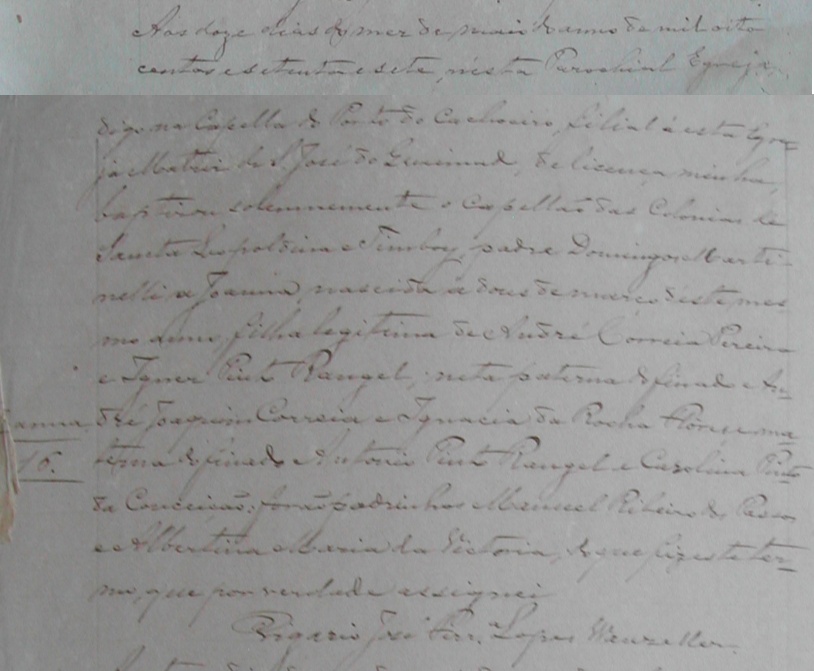 Aos doze dias do mez de maio do anno de mil oito
centos e setenta e sete, nesta Parochial Egreja,
digo na Capella do Porto do Cachoeiro, filial á esta Egre-
ja Matriz de S. José do Queimado, de licença minha,
baptizou solemnemente o Capellão das Colonias de
Santa Leopoldina e Timbuy, padre Domingos Marti-
nelli, a Joanna, nascida a dous de março deste mes-
mo anno, filha legitima de André Correia Pereira
e Ignez Pinto Rangel; neta paterna do finado An-
dré Joaquim Correia e Ignacia da Rocha Flores, e ma-
terna do finado Antonio Pinto Rangel e Carolina Pinto
da Conceição: forão padrinhos Manoel Ribeiro dos Passos
e Albertina Maria da Victoria, do que fiz este ter-
mo, que por verdade assignei
Vigario José Lopes
Joanna
16.